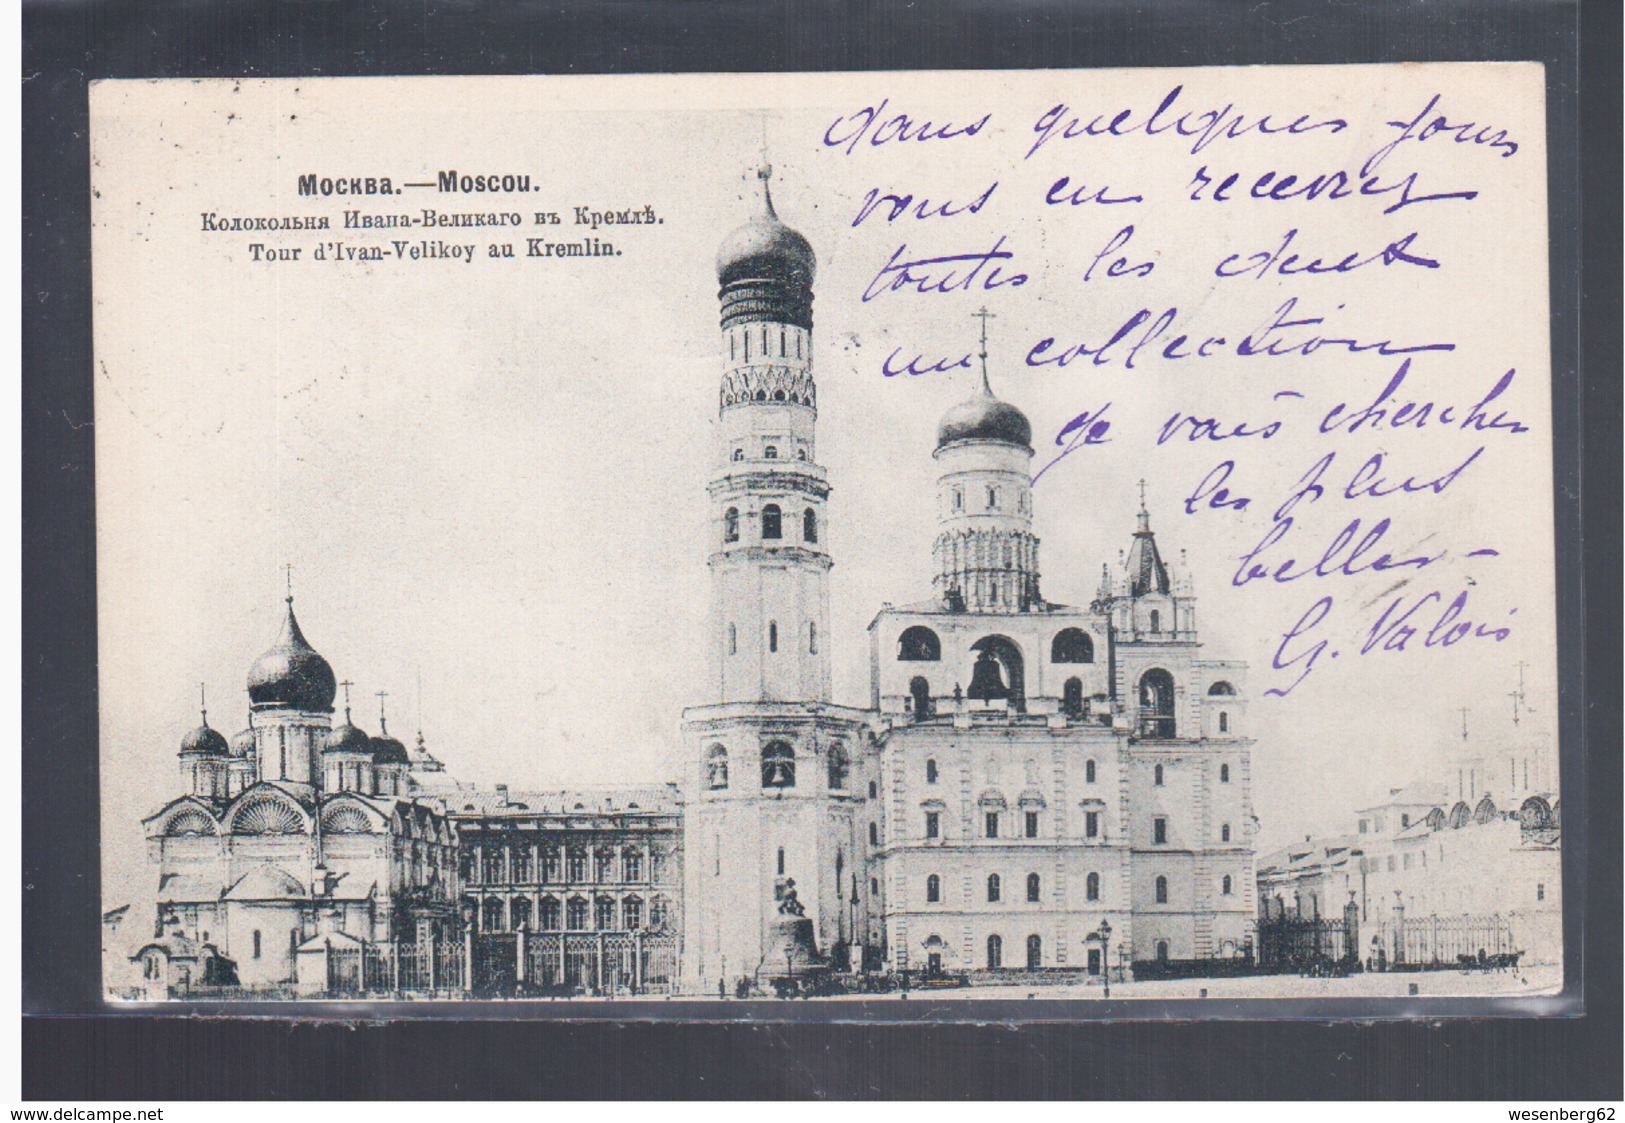 Москва.—Moscou.
Колокольня Ивана-Великаго въ Кремлѣ.
Tour d'Ivan-Velikoy au Kremlin.
dans quelques jours
vous en recevrez
toutes les deux
une collection
je vais chercher
les plus
belles—
G. Valois
www.delcampe.net
wesenberg62